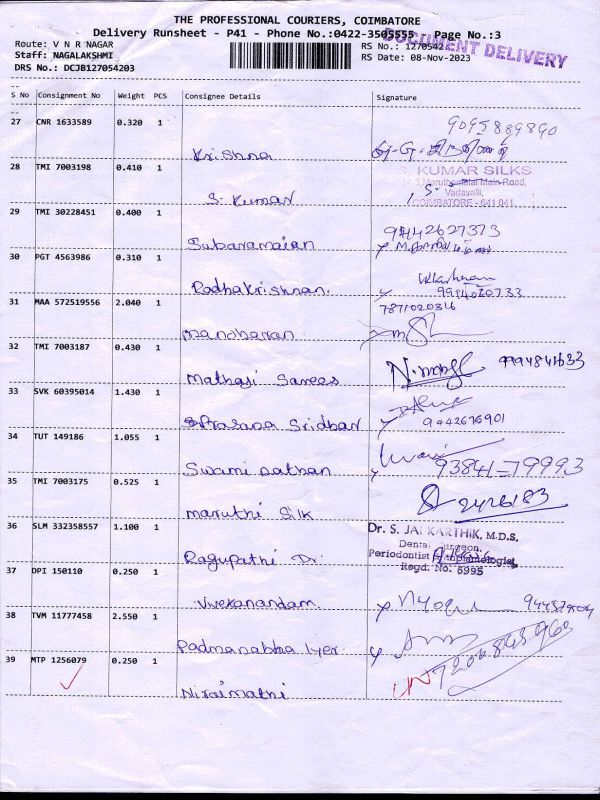 THE PROFESSIONAL COURIERS, COIMBATORE
Delivery Runsheet - P41 - Phone No.:0422-3505555 Page No.:3
DOCUMENT DELIVERY
Route: V N R NAGAR
RS No.: 1270542
Staff: NAGALAKSHMI
RS Date: 08-Nov-2023
DRS No.: DCJB127054203
S No Consignment No Weight PCS Consignee Details Signature
27 CNR 1633589 0.320 1
9095889890
Krishna
28 TMI 7003198 0.410 1
S. KUMAR SILKS
Maruthamalai Main Road,
Vadavalli,
COIMBATORE - 641 041.
S. Kumar
29 TMI 30228451 0.400 1
9442627373
Subaramaian
30 PGT 4563986 0.310 1
Radhakrishnan.
31 MAA 572519556 2.040 1
7871020316
Manoharan
32 TMI 7003187 0.430 1
Mathaji Sarees
33 SVK 60395014 1.430 1
Prasana Sridhar
9442676901
34 TUT 149186 1.055 1
Swami nathan
93841-79993
35 TMI 7003175 0.525 1
2426183
Maruthi Silk
36 SLM 332358557 1.100 1
Dr. S. JAI KARTHIK, M.D.S.
Dental Surgeon,
Periodontist Implantologist,
Regd. No. 6995
Ragupathi Dr.
37 DPI 150110 0.250 1
Vivekanandam.
38 TVM 11777458 2.550 1
Padmanabba Iyer.
39 MTP 1256079 0.250 1
Niraimathi